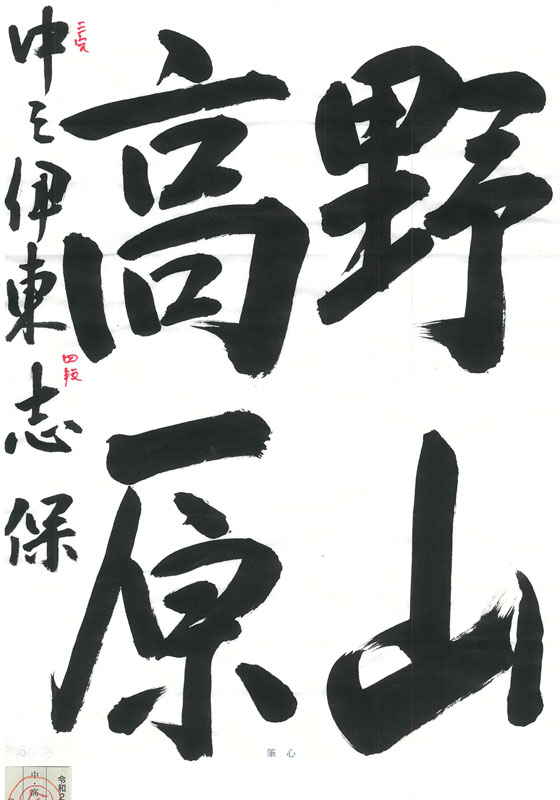 野山
高原
中三 伊東志保
四段
心筆
令和2
中・高